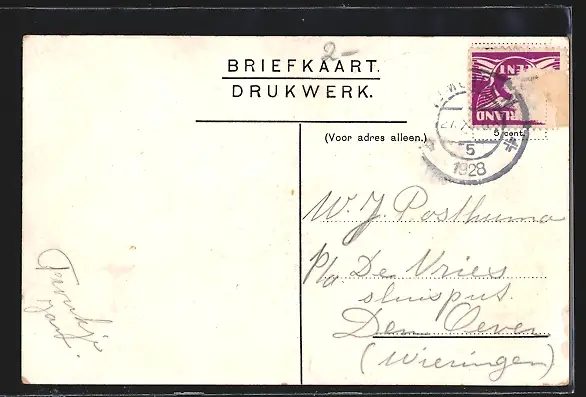 2-
BRIEFKAART.
DRUKWERK.
(Voor adres alleen.)
CENT
RLAND
5 cent.
5
1928
W. J. Posthuma
p/a De Vries
sluisput.
Den Oever
(Wieringen)